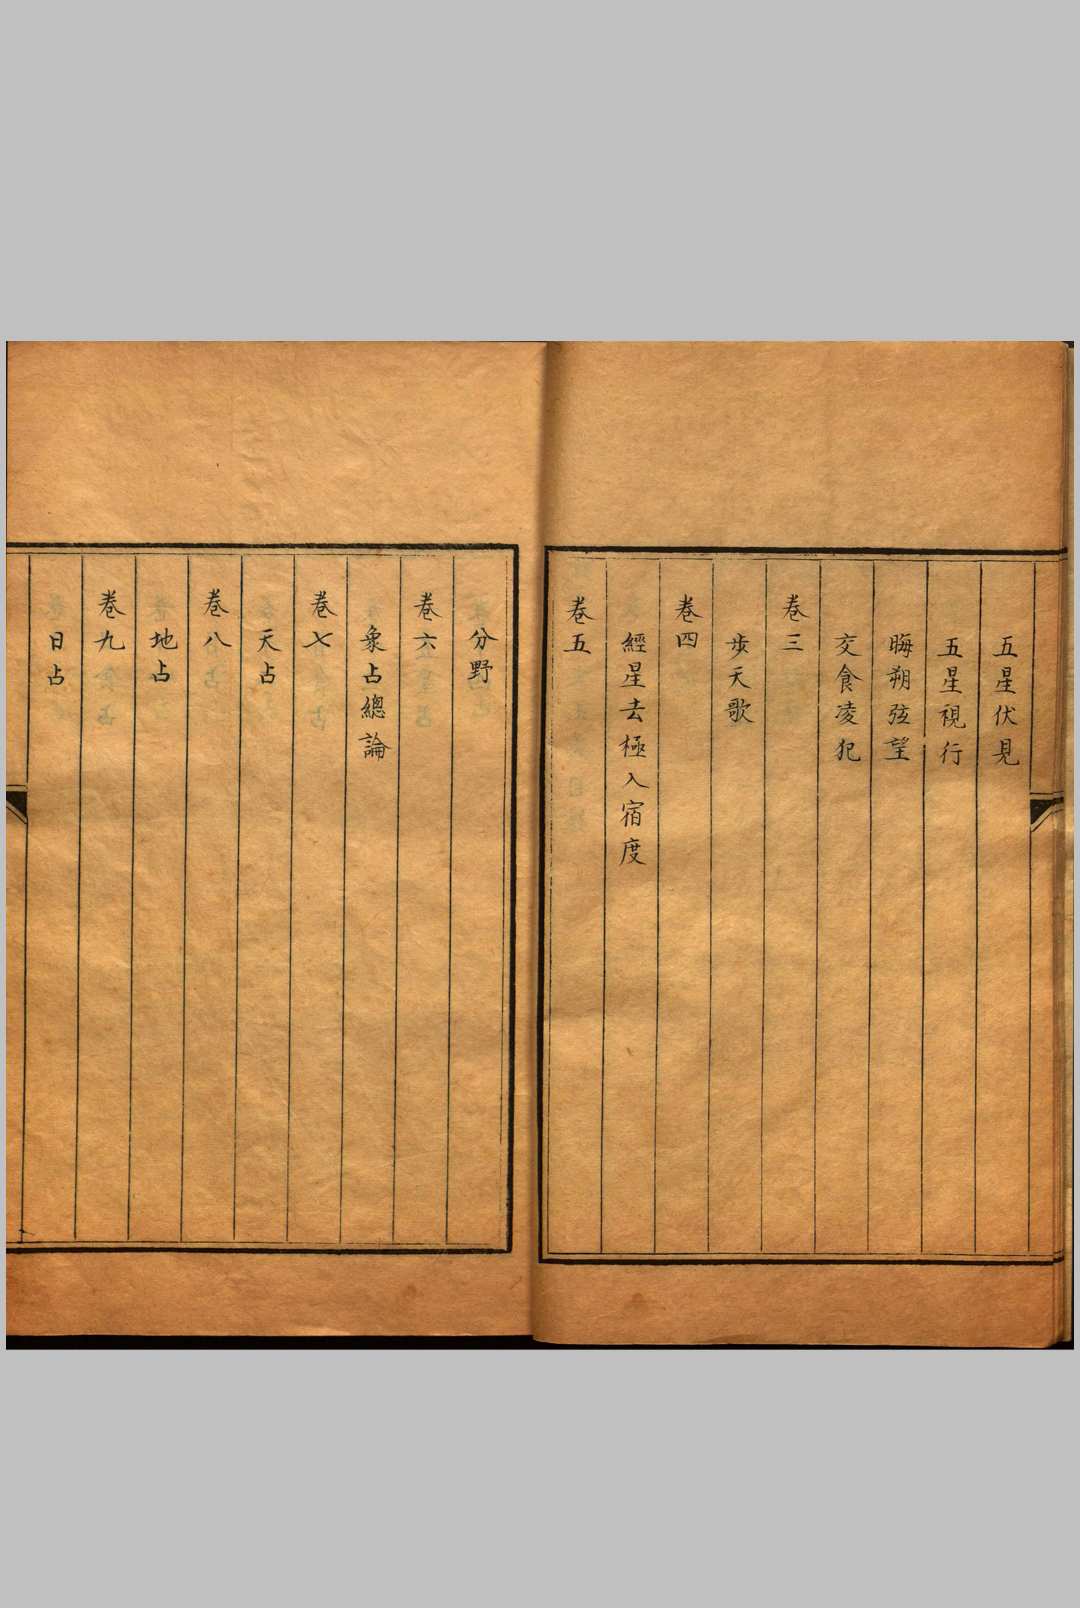 五星伏見
五星視行
晦朔弦望
交食凌犯
卷三
步天歌
卷四
經星去極入宿度
卷五
分野
卷六
象占總論
卷七
天占
卷八
地占
卷九
日占